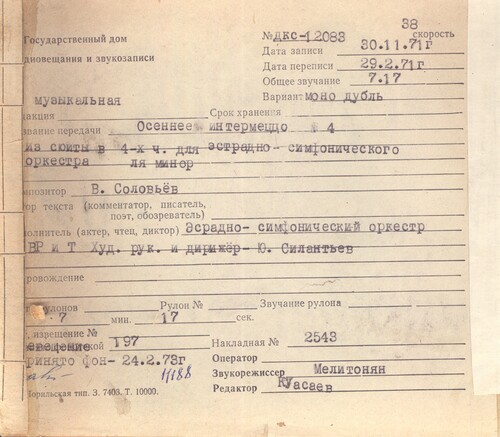 38
Государственный дом
№ ДКС-12083 скорость
диовещания и звукозаписи
Дата записи 30.11.71г
Дата переписи 29.2.71г
Общее звучание 7.17
Вариант моно дубль
музыкальная
акция Срок хранения
звание передачи Осеннее интермеццо № 4
из сюиты в 4-х ч. для эстрадно- симфонического
оркестра ля минор
мпозитор В. Соловьёв
ор текста (комментатор, писатель,
поэт, обозреватель)
олнитель (актер, чтец, диктор) Эсрадно- симфонический оркестр
ВР и Т Худ. рук. и дирижёр- Ю. Силантьев
провождение
рулонов Рулон № Звучание рулона
7 мин. 17 сек.
азрешение №
197
Накладная № 2543
сведение
ринято фон- 24.2.73г
Оператор
1/188
Звукорежиссер Мелитонян
Норильская тип. З. 7403. Т. 10000.
Редактор Куасаев